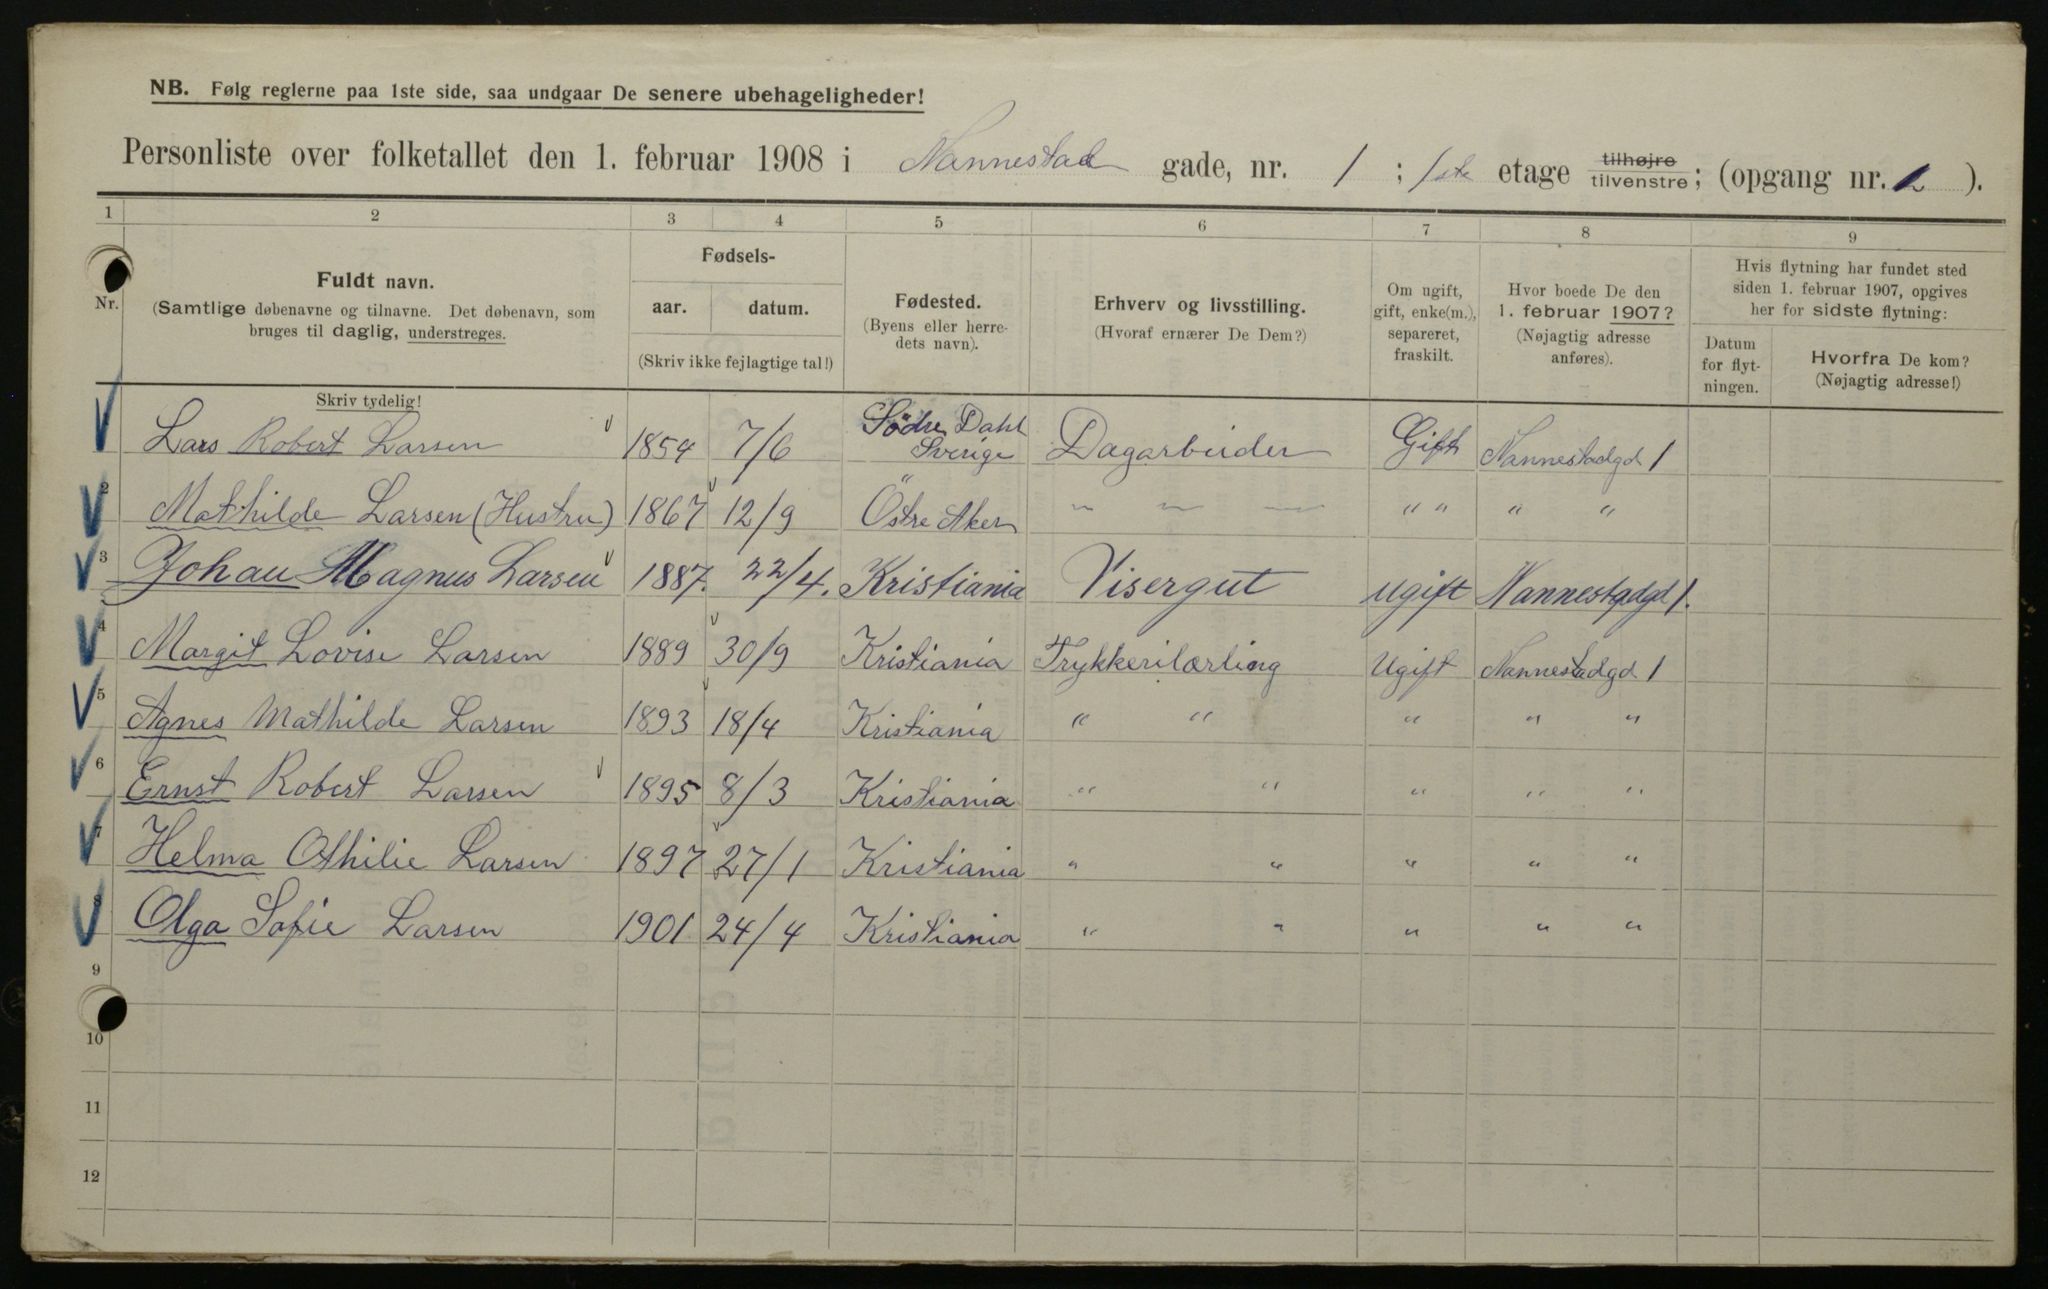 NB. Følg reglerne paa 1ste side, saa undgaar De senere ubehageligheder!
Personliste over folketallet den 1. februar 1908 i Nannestad gade, nr. 1 ; 1ste etage tilhøjre tilvenstre; (opgang nr. ).
1 2 3 4 5 6 7 8 9
Nr.
Fuldt navn.
(Samtlige døbenavne og tilnavne. Det døbenavn, som
bruges til daglig, understreges.
Skriv tydelig!
Fødsels-
aar. datum.
(Skriv ikke fejlagtige tal!)
Fødested.
(Byens eller herre-
dets navn).
Erhverv og livsstilling.
(Hvoraf ernærer De Dem?)
Om ugift,
gift, enke(m.),
separeret,
fraskilt.
Hvor boede De den
1. februar 1907?
(Nøjagtig adresse
anføres).
Hvis flytning har fundet sted
siden 1. februar 1907, opgives
her for sidste flytning:
Datum
for flyt-
ningen.
Hvorfra De kom?
(Nøjagtig adresse!)
Lars Robert Larsen 1854 7/6 Södre Dahl Sverige Dagarbeider Gift Nannestadgd 1
2 Mathilde Larsen (Hustru) 1867 12/9 Östre Aker " " " " " " "
3 Johan Magnus Larsen 1887. 22/4. Kristiania Visergut ugift Nannestadgd 1.
4 Margit Lovise Larsen 1889 30/9 Kristiania Trykkerilærling Ugift Nannestadgd 1
5 Agnes Mathilde Larsen 1893 18/4 Kristiania " " " " "
6 Ernst Robert Larsen 1895 8/3 Kristiania " " " " "
7 Helma Othilie Larsen 1897 27/1 Kristiania " " " " "
8 Olga Sofie Larsen 1901 24/4 Kristiania " " " " "
9
10
11
12